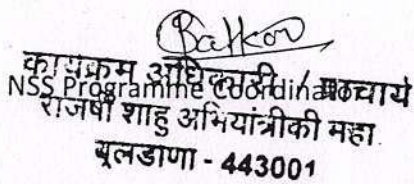 कार्यक्रम अधिकारी / प्राचार्य
NSS Programme Coordinator
राजर्षी शाहु अभियांत्रीकी महा.
बुलडाणा - 443001